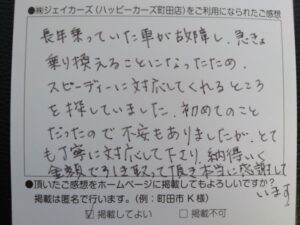 ●㈱ジェイカーズ(ハッピーカーズ町田店)をご利用になられたご感想
長年乗っていた車が故障し、急きょ
乗り換えることになったため、
スピーディーに対応してくれるところ
を探していました。初めてのこと
だったので不安もありましたが、とて
も丁寧に対応して下さり、納得いく
金額で引き取って頂き本当に感謝して
います
●頂いたご感想をホームページに掲載してもよろしいですか?
掲載は匿名で行います。(例:町田市 K 様)
☑ 掲載してよい □ 掲載不可